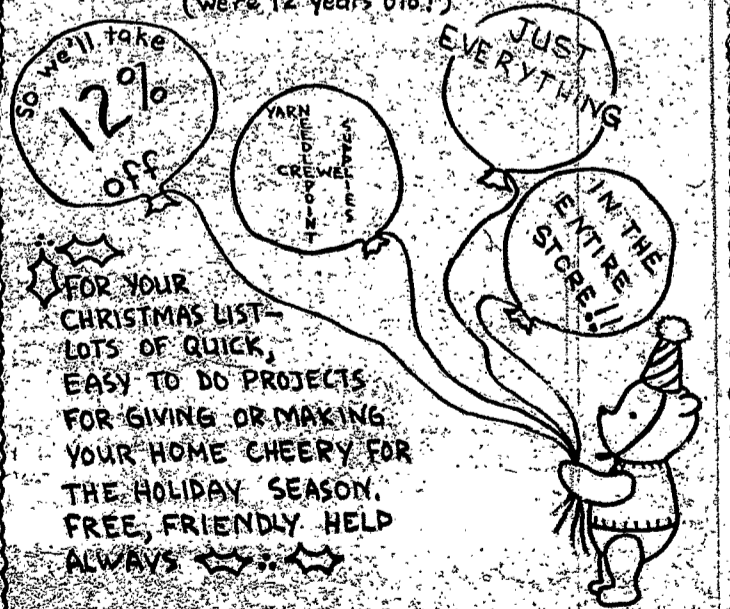 (We're 12 years old!)
So we'll take
12%
off
YARN
NEEDLEPOINT
CREWEL
SUPPLIES
JUST
EVERYTHING
IN THE
ENTIRE
STORE!!
FOR YOUR
CHRISTMAS LIST—
LOTS OF QUICK,
EASY TO DO PROJECTS
FOR GIVING OR MAKING
YOUR HOME CHEERY FOR
THE HOLIDAY SEASON.
FREE, FRIENDLY HELP
ALWAYS